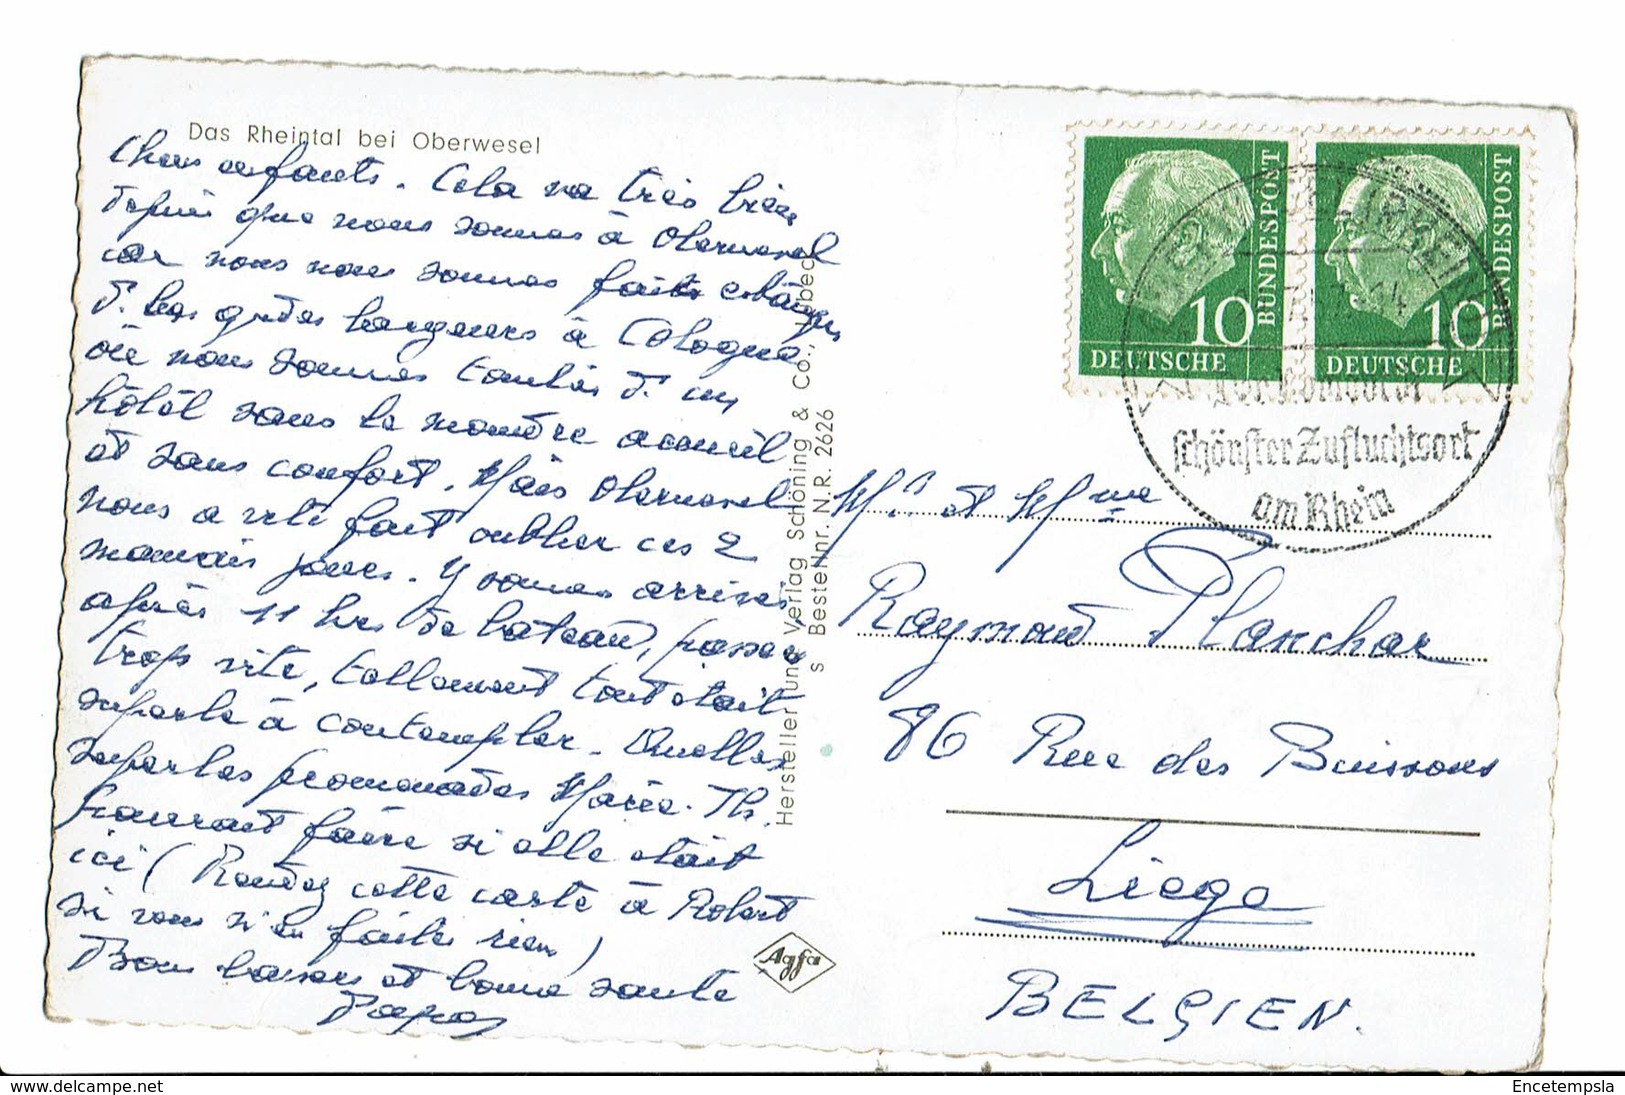 Das Rheintal bei Oberwesel
Chers enfants. Cela va très bien
depuis que nous sommes à Oberwesel
car nous nous sommes faits
d. les hargneurs à Cologne
où nous sommes tombés d. un
hôtel sans le moindre accueil
et sans confort. Mais Oberwesel
nous a vite fait oublier ces 2
mauvais jours. Y sommes arrivés
après 11 hrs de bateau, passées
trop vite, tellement tout était
superbe à contempler. Quelles
superbes promenades Marie. Th.
pourrait faire si elle était
ici ( Rendez cette carte à Robert
si vous n'en faites rien )
Bons baisers et bonne santé
Papa
Hersteller und Verlag Schöning & Co.,
s BesteNnr. N.R. 2626
Agfa
DEUTSCHE BUNDESPOST 10
DEUTSCHE BUNDESPOST 10
schönster Zufluchtsort
am Rhein
Mr et Mme
Raymond Planchar
86 Rue des Buissons
Liege
BELGIEN.
Encetempsla